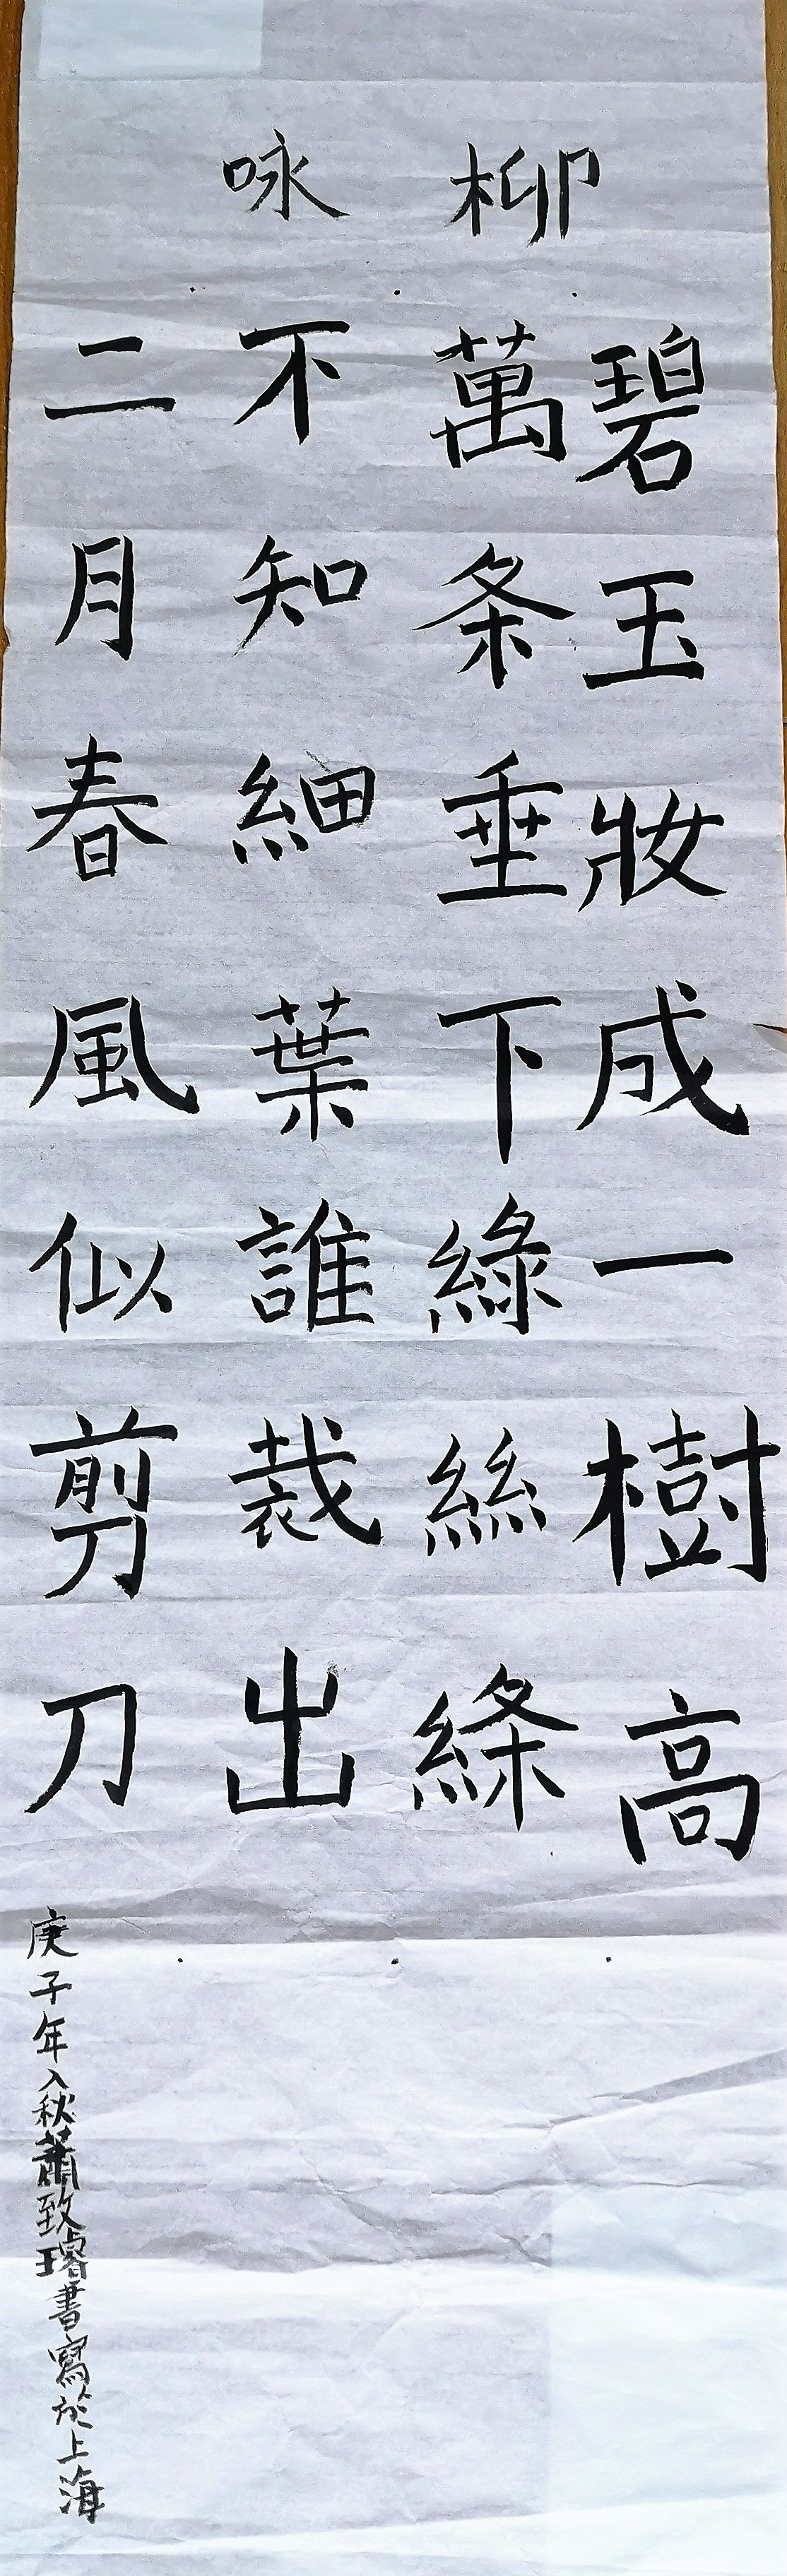 咏柳
碧玉妝成一樹高
萬条垂下綠絲絛
不知細葉誰裁出
二月春風似剪刀
庚子年入秋蕭致璿書寫於上海